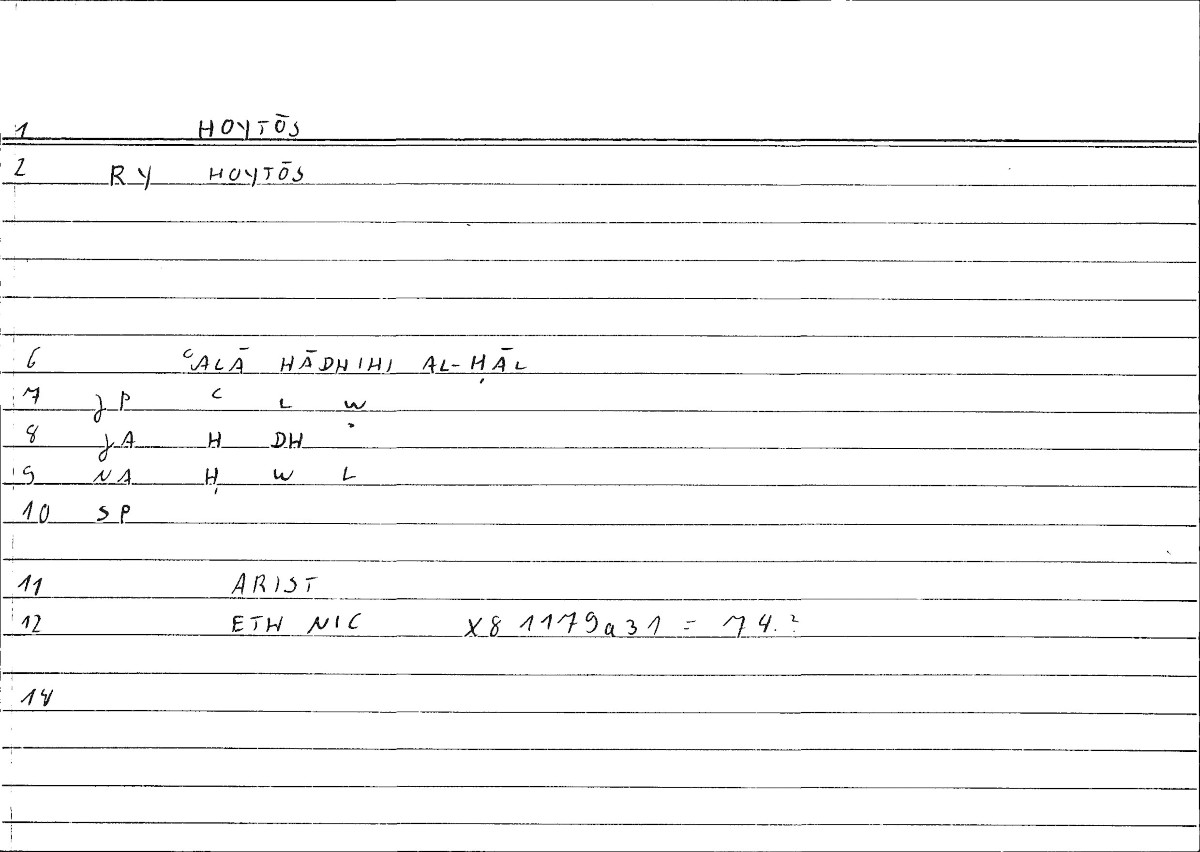 1 HOYTŌS
2 RY HOYTŌS
6 ʿALĀ HĀDHIHI AL-ḤĀL
7 JP ʿ L W
8 JA H DH ʾ
9 NA Ḥ W L
10 SP
11 ARIST
12 ETH NIC X8 1179a31 = 74.?
14